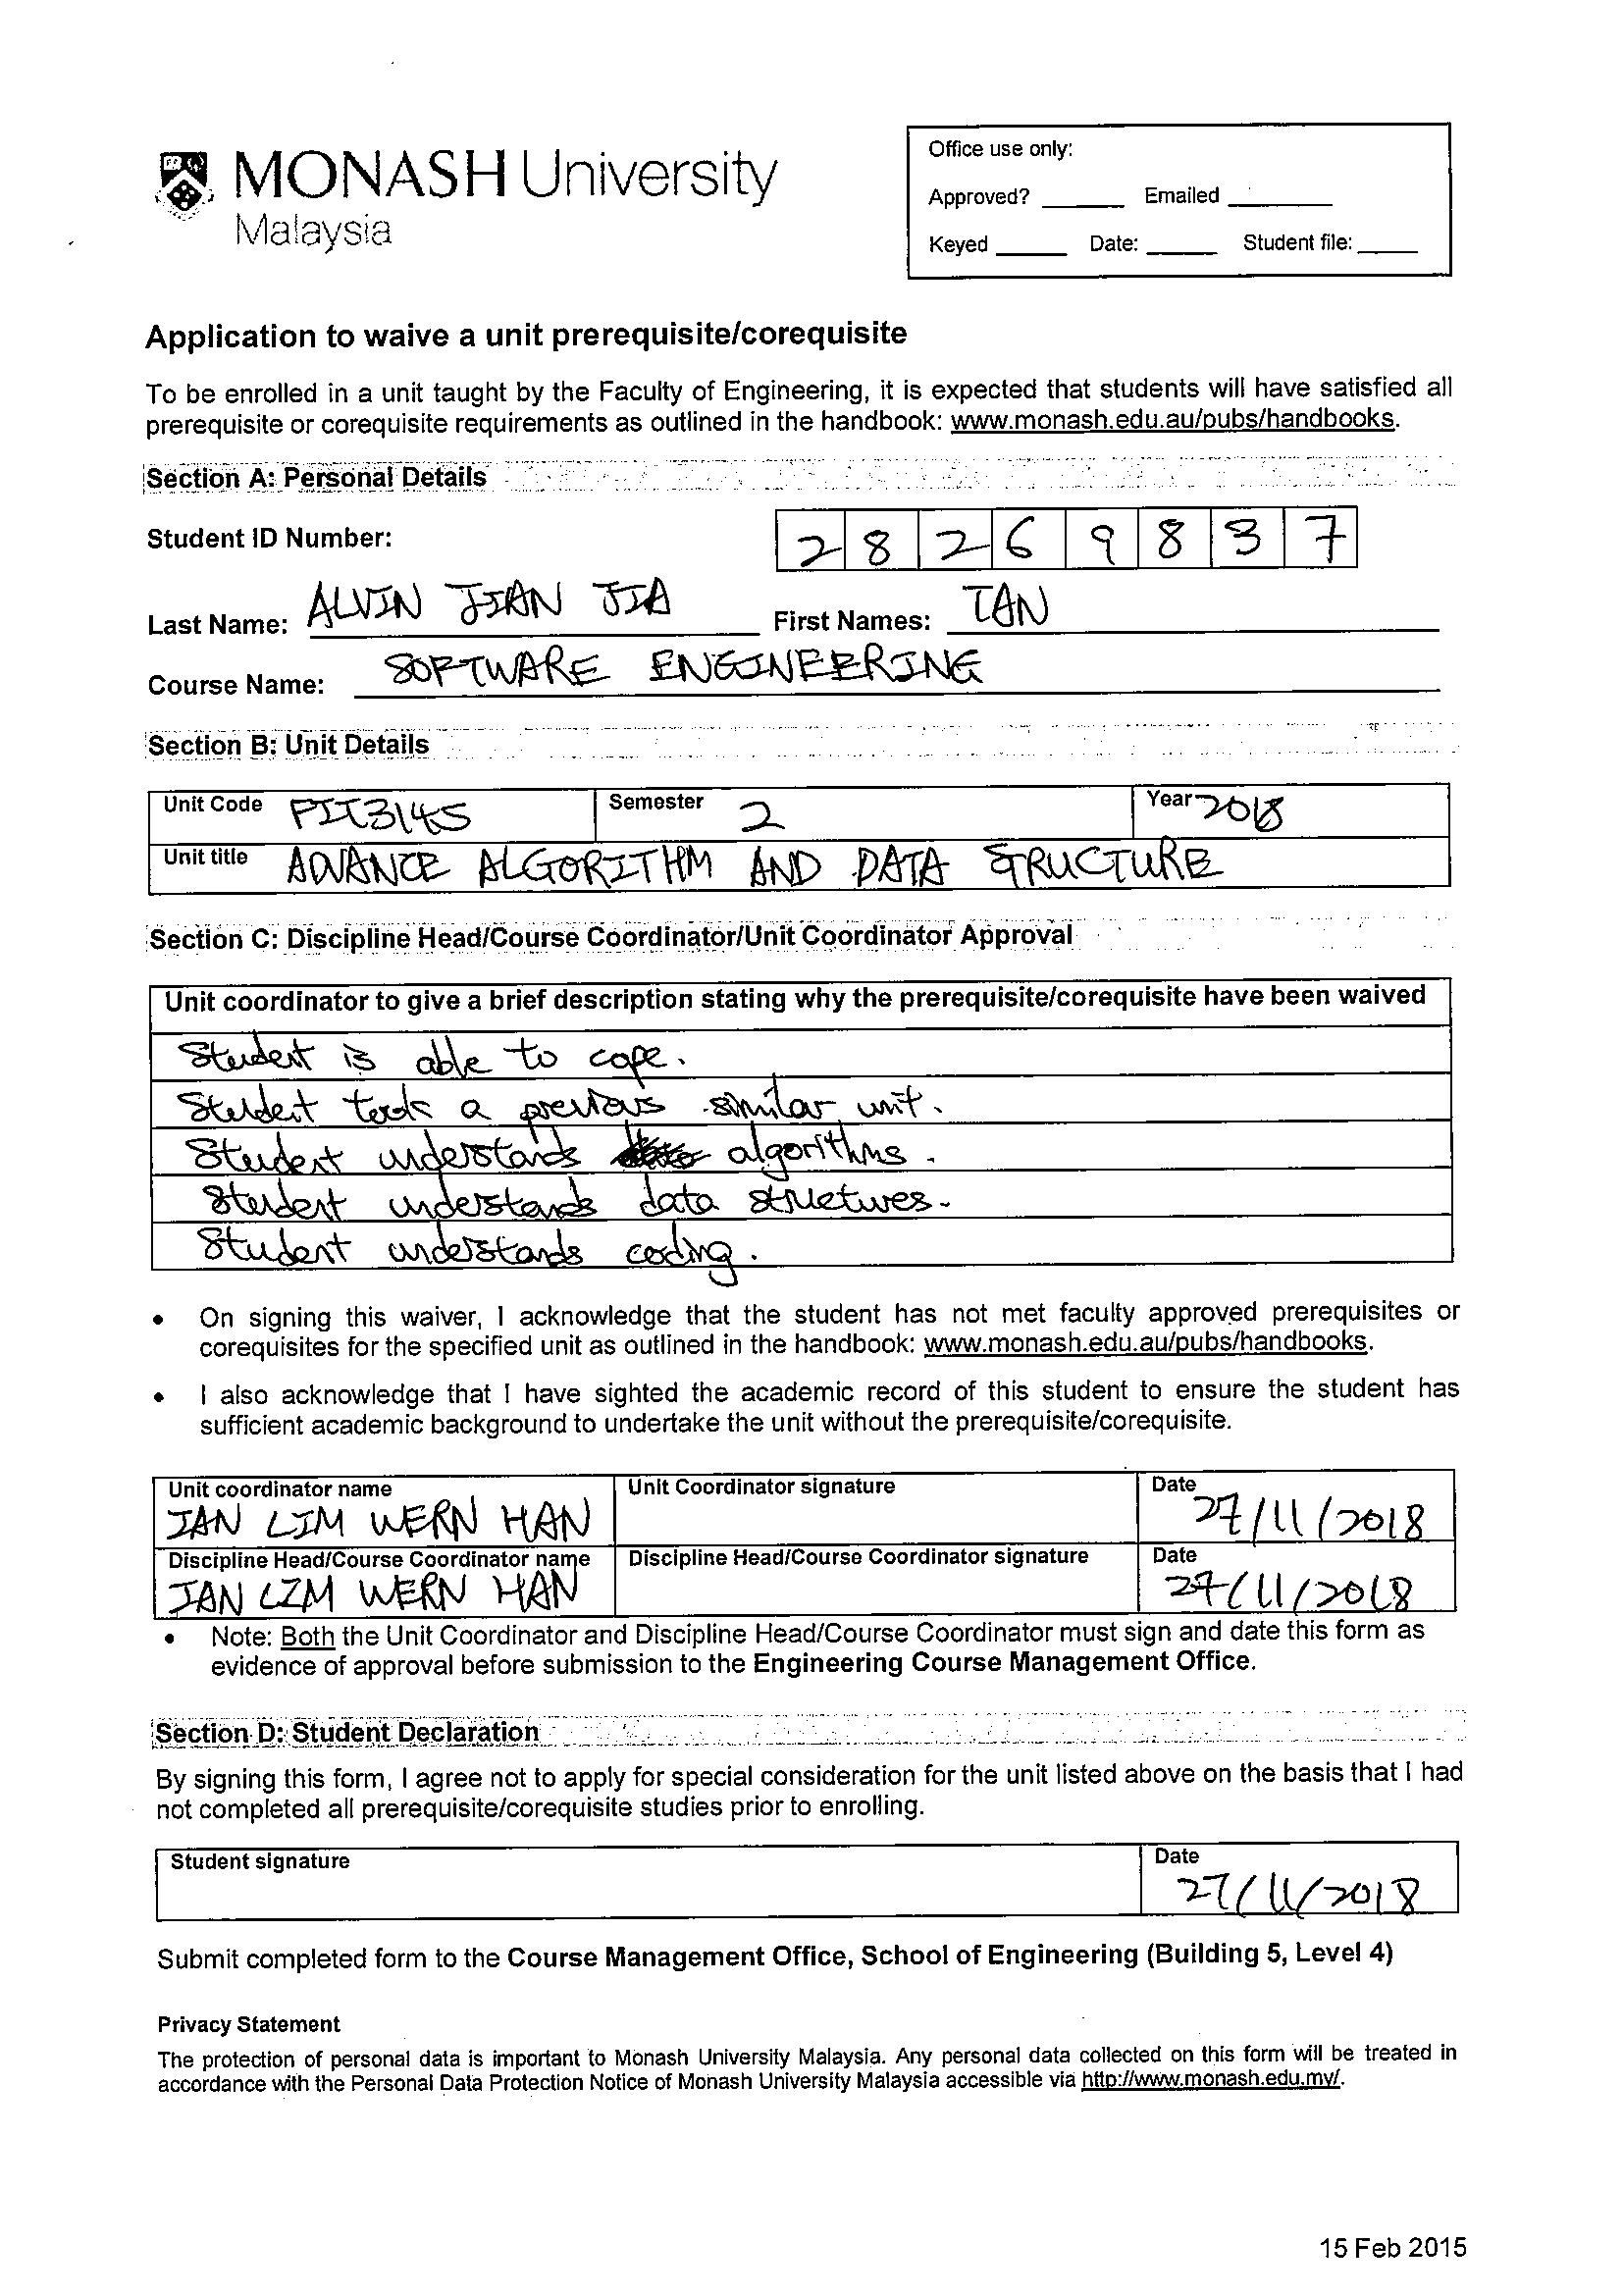 MONASH University
Malaysia
Office use only:
Approved? ______ Emailed ________
Keyed ______ Date: ______ Student file: _____
Application to waive a unit prerequisite/corequisite
To be enrolled in a unit taught by the Faculty of Engineering, it is expected that students will have satisfied all
prerequisite or corequisite requirements as outlined in the handbook: www.monash.edu.au/pubs/handbooks.
Section A: Personal Details
Student ID Number: 2 8 2 6 9 8 3 7
Last Name: ALVIN JIAN JIA First Names: TAN
Course Name: SOFTWARE ENGINEERING
Section B: Unit Details
Unit Code FIT3145 Semester 2 Year 2018
Unit title ADVANCE ALGORITHM AND DATA STRUCTURE
Section C: Discipline Head/Course Coordinator/Unit Coordinator Approval
Unit coordinator to give a brief description stating why the prerequisite/corequisite have been waived
Student is able to cope.
Student took a previous similar unit.
Student understands algorithms.
Student understands data structures.
Student understands coding.
• On signing this waiver, I acknowledge that the student has not met faculty approved prerequisites or
corequisites for the specified unit as outlined in the handbook: www.monash.edu.au/pubs/handbooks.
• I also acknowledge that I have sighted the academic record of this student to ensure the student has
sufficient academic background to undertake the unit without the prerequisite/corequisite.
Unit coordinator name Unit Coordinator signature Date
IAN LIM WERN HAN 27/11/2018
Discipline Head/Course Coordinator name Discipline Head/Course Coordinator signature Date
IAN LIM WERN HAN 27/11/2018
• Note: Both the Unit Coordinator and Discipline Head/Course Coordinator must sign and date this form as
evidence of approval before submission to the Engineering Course Management Office.
Section D: Student Declaration
By signing this form, I agree not to apply for special consideration for the unit listed above on the basis that I had
not completed all prerequisite/corequisite studies prior to enrolling.
Student signature Date
27/11/2018
Submit completed form to the Course Management Office, School of Engineering (Building 5, Level 4)
Privacy Statement
The protection of personal data is important to Monash University Malaysia. Any personal data collected on this form will be treated in
accordance with the Personal Data Protection Notice of Monash University Malaysia accessible via http://www.monash.edu.my/.
15 Feb 2015